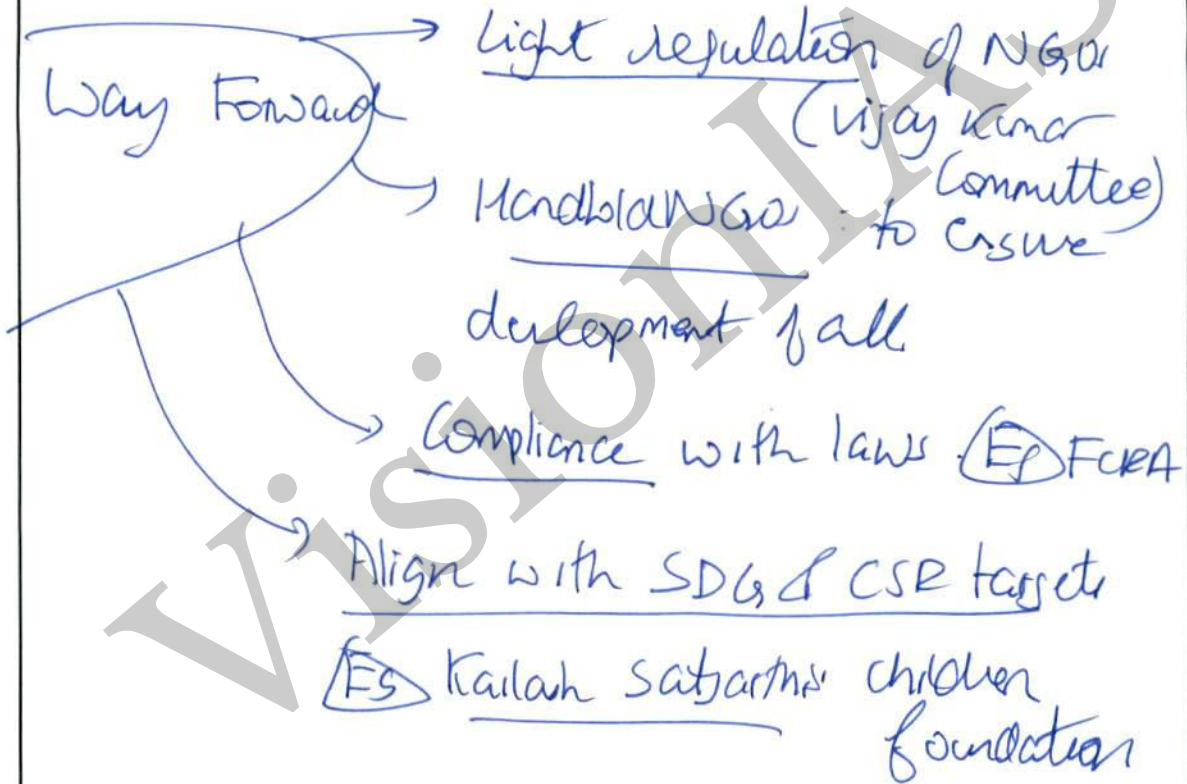 Way Forward
Light regulation of NGOs
(Vijay Kumar
Committee)
Handhold NGOs : to ensure
development of all
Compliance with laws Eg FCRA
Align with SDG & CSR targets
Eg Kailash Satyarthi's children
foundation
VisionIAS